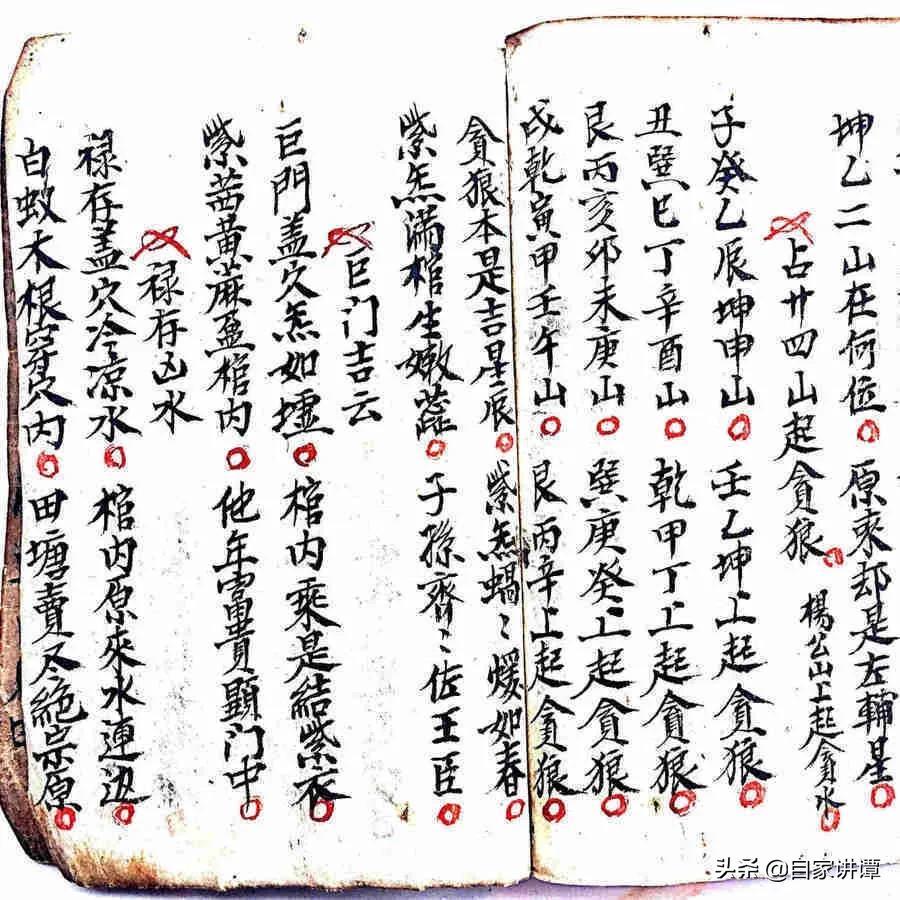 坤乙二山在何位 原来却是左輔星
占廿四山起貪狼 楊公山上起貪水
子癸乙辰坤申山 壬乙坤上起貪狼
丑巽巳丁辛酉山 乾甲丁上起貪狼
艮丙亥卯未庚山 巽庚癸上起貪狼
戌乾寅甲壬午山 艮丙辛上起貪狼
貪狼本是吉星辰 紫炁蝎〻煖如春
紫炁满棺生嫩蕋 子孫齊〻佐王臣
巨门吉云
巨門盖穴炁如墟 棺内乘是結紫衣
紫茜黄蔴盈棺内 他年富貴顕门中
禄存凶水
禄存盖穴冷凉水 棺内原來水連边
白蚁木根穿穴内 田塘賣尽絶宗原
头条 @自家讲谭